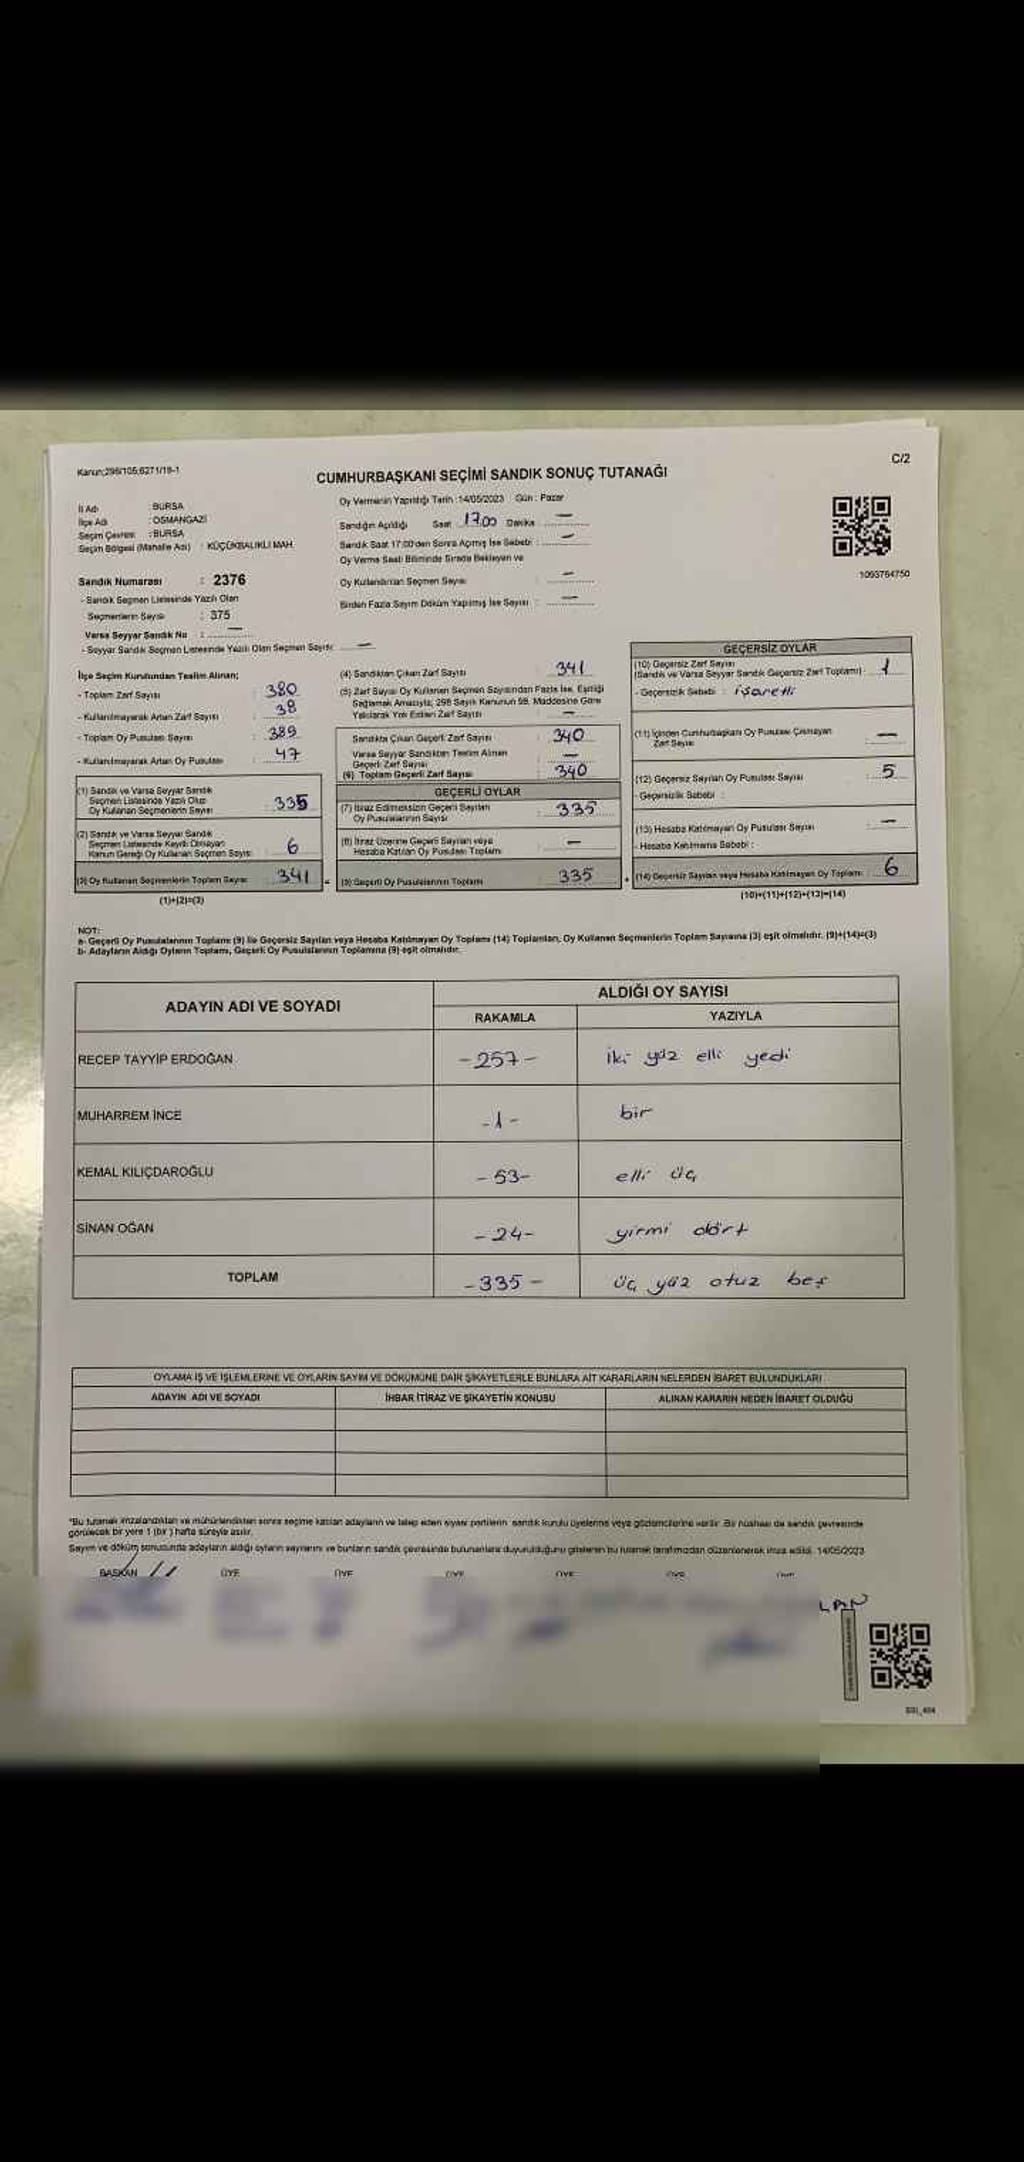 Kanun;298/105;6271/19-1
C/2
CUMHURBAŞKANI SEÇİMİ SANDIK SONUÇ TUTANAĞI
İl Adı : BURSA
İlçe Adı : OSMANGAZİ
Seçim Çevresi : BURSA
Seçim Bölgesi (Mahalle Adı) : KÜÇÜKBALIKLI MAH.
Oy Vermenin Yapıldığı Tarih : 14/05/2023 Gün : Pazar
Sandığın Açıldığı Saat 17.00 Dakika —
Sandık Saat 17:00'den Sonra Açılmış İse Sebebi : —
Oy Verme Saati Bitiminde Sırada Bekleyen ve
Oy Kullandırılan Seçmen Sayısı : —
Birden Fazla Sayım Döküm Yapılmış İse Sayısı : —
1093764750
Sandık Numarası : 2376
- Sandık Seçmen Listesinde Yazılı Olan
Seçmenlerin Sayısı : 375
Varsa Seyyar Sandık No : —
- Seyyar Sandık Seçmen Listesinde Yazılı Olan Seçmen Sayısı: —
İlçe Seçim Kurulundan Teslim Alınan;
- Toplam Zarf Sayısı : 380
- Kullanılmayarak Artan Zarf Sayısı : 38
- Toplam Oy Pusulası Sayısı : 389
- Kullanılmayarak Artan Oy Pusulası : 47
(1) Sandık ve Varsa Seyyar Sandık
Seçmen Listesinde Yazılı Olup
Oy Kullanan Seçmenlerin Sayısı : 335
(2) Sandık ve Varsa Seyyar Sandık
Seçmen Listesinde Kayıtlı Olmayan
Kanun Gereği Oy Kullanan Seçmen Sayısı : 6
(3) Oy Kullanan Seçmenlerin Toplam Sayısı : 341
(1)+(2)=(3)
(4) Sandıktan Çıkan Zarf Sayısı : 341
(5) Zarf Sayısı Oy Kullanan Seçmen Sayısından Fazla İse, Eşitliği
Sağlamak Amacıyla, 298 Sayılı Kanunun 98. Maddesine Göre
Yakılarak Yok Edilen Zarf Sayısı : —
Sandıkta Çıkan Geçerli Zarf Sayısı : 340
Varsa Seyyar Sandıktan Teslim Alınan
Geçerli Zarf Sayısı : —
(6) Toplam Geçerli Zarf Sayısı : 340
GEÇERLİ OYLAR
(7) İtiraz Edilmeksizin Geçerli Sayılan
Oy Pusulalarının Sayısı : 335
(8) İtiraz Üzerine Geçerli Sayılan veya
Hesaba Katılan Oy Pusulası Toplamı : —
(9) Geçerli Oy Pusulalarının Toplamı : 335
GEÇERSİZ OYLAR
(10) Geçersiz Zarf Sayısı
(Sandık ve Varsa Seyyar Sandık Geçersiz Zarf Toplamı) : 1
- Geçersizlik Sebebi : işaretli
(11) İçinden Cumhurbaşkanı Oy Pusulası Çıkmayan
Zarf Sayısı : —
(12) Geçersiz Sayılan Oy Pusulası Sayısı : 5
- Geçersizlik Sebebi :
(13) Hesaba Katılmayan Oy Pusulası Sayısı : —
- Hesaba Katılmama Sebebi :
(14) Geçersiz Sayılan veya Hesaba Katılmayan Oy Toplamı : 6
(10)+(11)+(12)+(13)=(14)
NOT:
a- Geçerli Oy Pusulalarının Toplamı (9) ile Geçersiz Sayılan veya Hesaba Katılmayan Oy Toplamı (14) Toplamları, Oy Kullanan Seçmenlerin Toplam Sayısına (3) eşit olmalıdır. (9)+(14)=(3)
b- Adayların Aldığı Oyların Toplamı, Geçerli Oy Pusulalarının Toplamına (9) eşit olmalıdır.
ADAYIN ADI VE SOYADI
ALDIĞI OY SAYISI
RAKAMLA YAZIYLA
RECEP TAYYİP ERDOĞAN -257- iki yüz elli yedi
MUHARREM İNCE -1- bir
KEMAL KILIÇDAROĞLU -53- elli üç
SİNAN OĞAN -24- yirmi dört
TOPLAM -335- üç yüz otuz beş
OYLAMA İŞ VE İŞLEMLERİNE VE OYLARIN SAYIM VE DÖKÜMÜNE DAİR ŞİKAYETLERLE BUNLARA AİT KARARLARIN NELERDEN İBARET BULUNDUKLARI
ADAYIN ADI VE SOYADI İHBAR İTİRAZ VE ŞİKAYETİN KONUSU ALINAN KARARIN NEDEN İBARET OLDUĞU
*Bu tutanak imzalandıktan ve mühürlendikten sonra seçime katılan adayların ve talep eden siyasi partilerin sandık kurulu üyelerine veya gözlemcilerine verilir. Bir nüshası da sandık çevresinde
görülecek bir yere 1 (bir) hafta süreyle asılır.
Sayım ve döküm sonucunda adayların aldığı oyların sayılarını ve bunların sandık çevresinde bulunanlara duyurulduğunu gösteren bu tutanak tarafımızdan düzenlenerek imza edildi. 14/05/2023
BAŞKAN ÜYE ÜYE ÜYE ÜYE ÜYE ÜYE
LAN